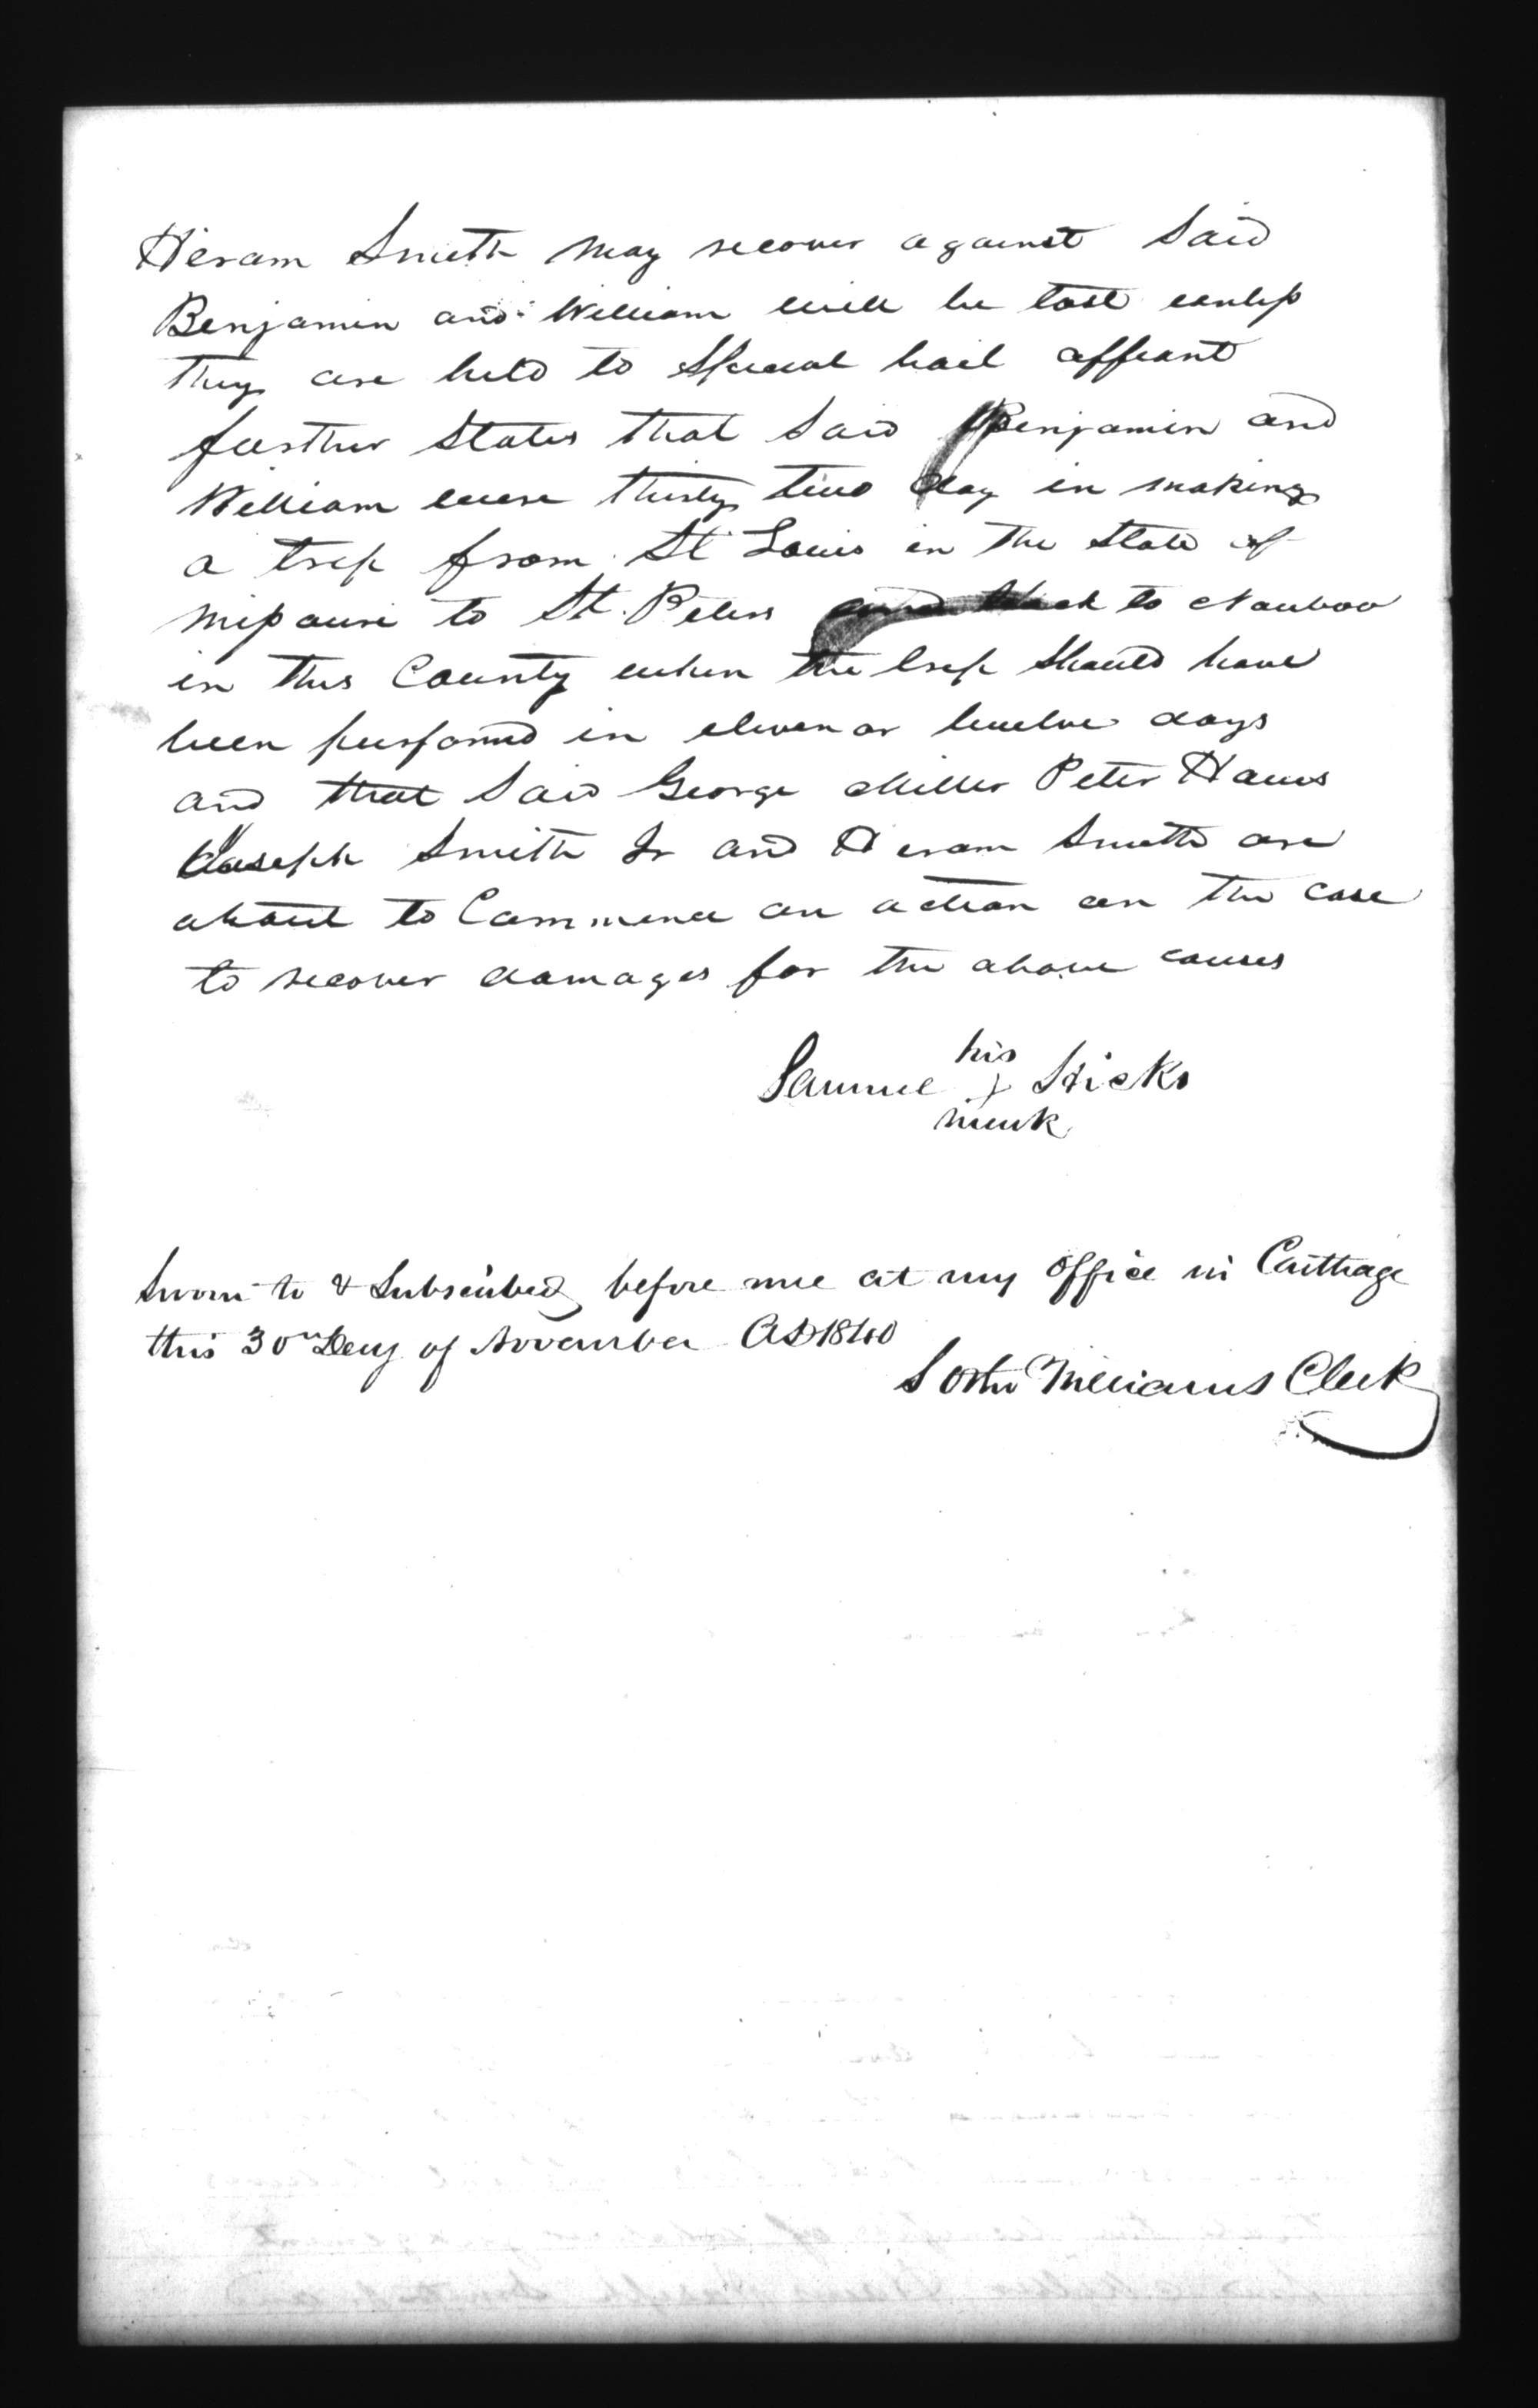 Hiram Smith may recover against Said
Benjamin and William will be lost unless
they are held to Special bail affiant
further States that Said Benjamin and
William were thirty two day in making
a trip from St Louis in the State of
Missouri to St. Peters and back to Nauvoo
in this County when the trip Should have
been performd in eleven or twelve days
and that Said George Miller Peter Haws
Joseph Smith Jr and Hiram Smith are
about to Commence an action on the case
to recover damages for the above causes
his
Samuel x Hicks
mark
Sworn to & Subscribed before me at my office in Carthage
this 30th Day of November AD 1840
Wm Clerk